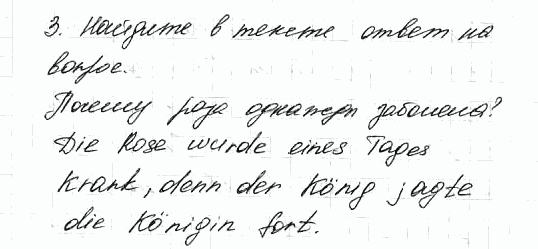 3. Найдите в тексте ответ на
вопрос.
Почему роза однажды заболела?
Die Rose wurde eines Tages
krank, denn der König jagte
die Königin fort.